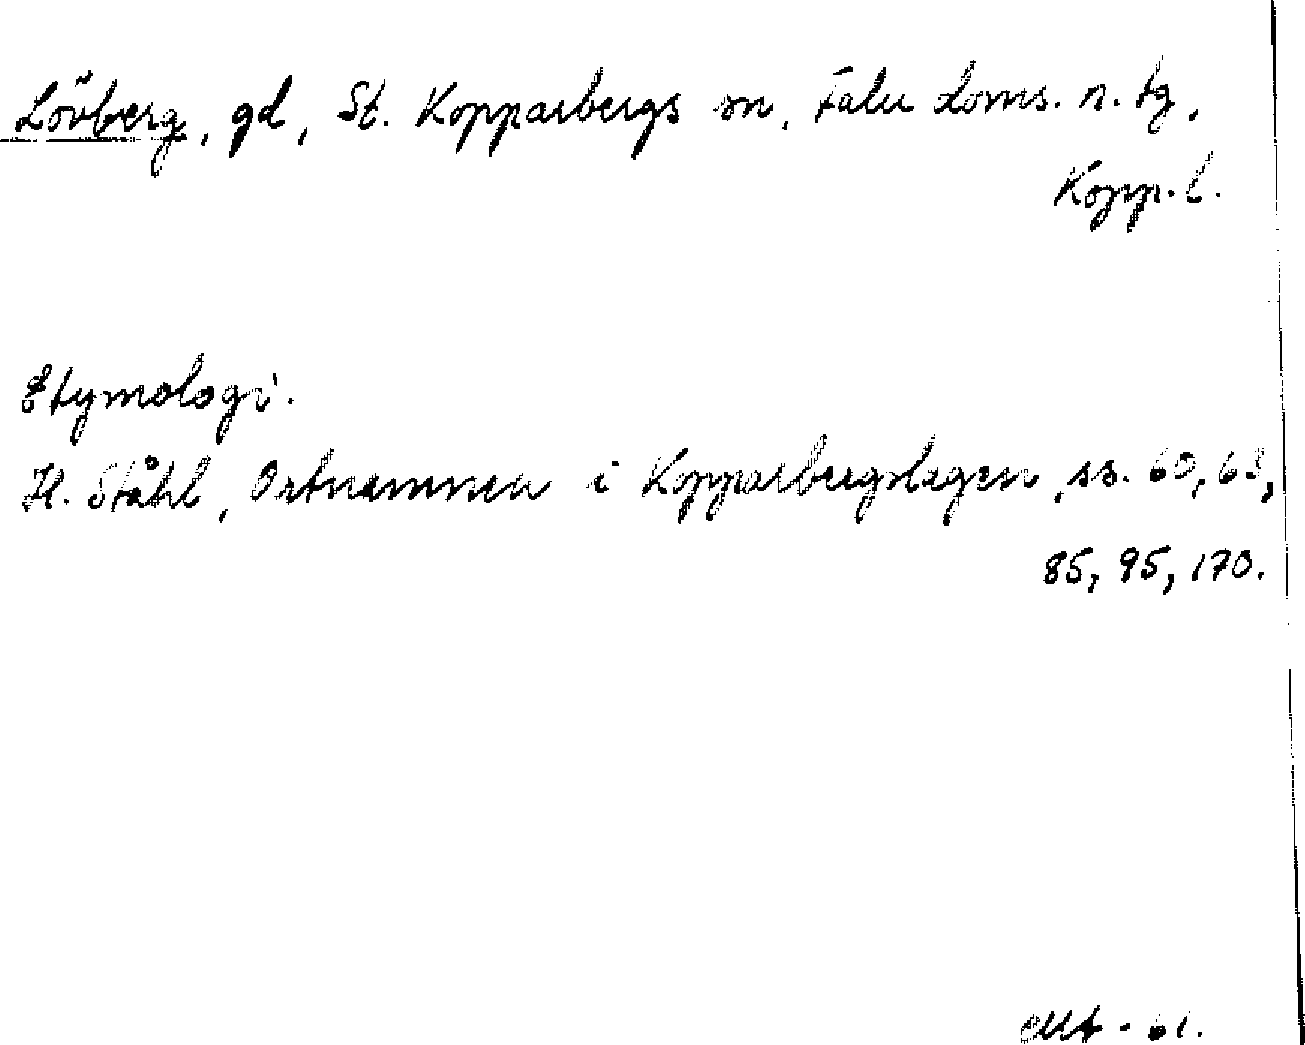 Lövberg, gd, St. Kopparbergs sn, Falu doms. n. tg,
Kopp. l.
Etymologi.
H. Ståhl, Ortnamnen i Kopparbergslagen, ss. 60, 63,
85, 95, 170.
61.